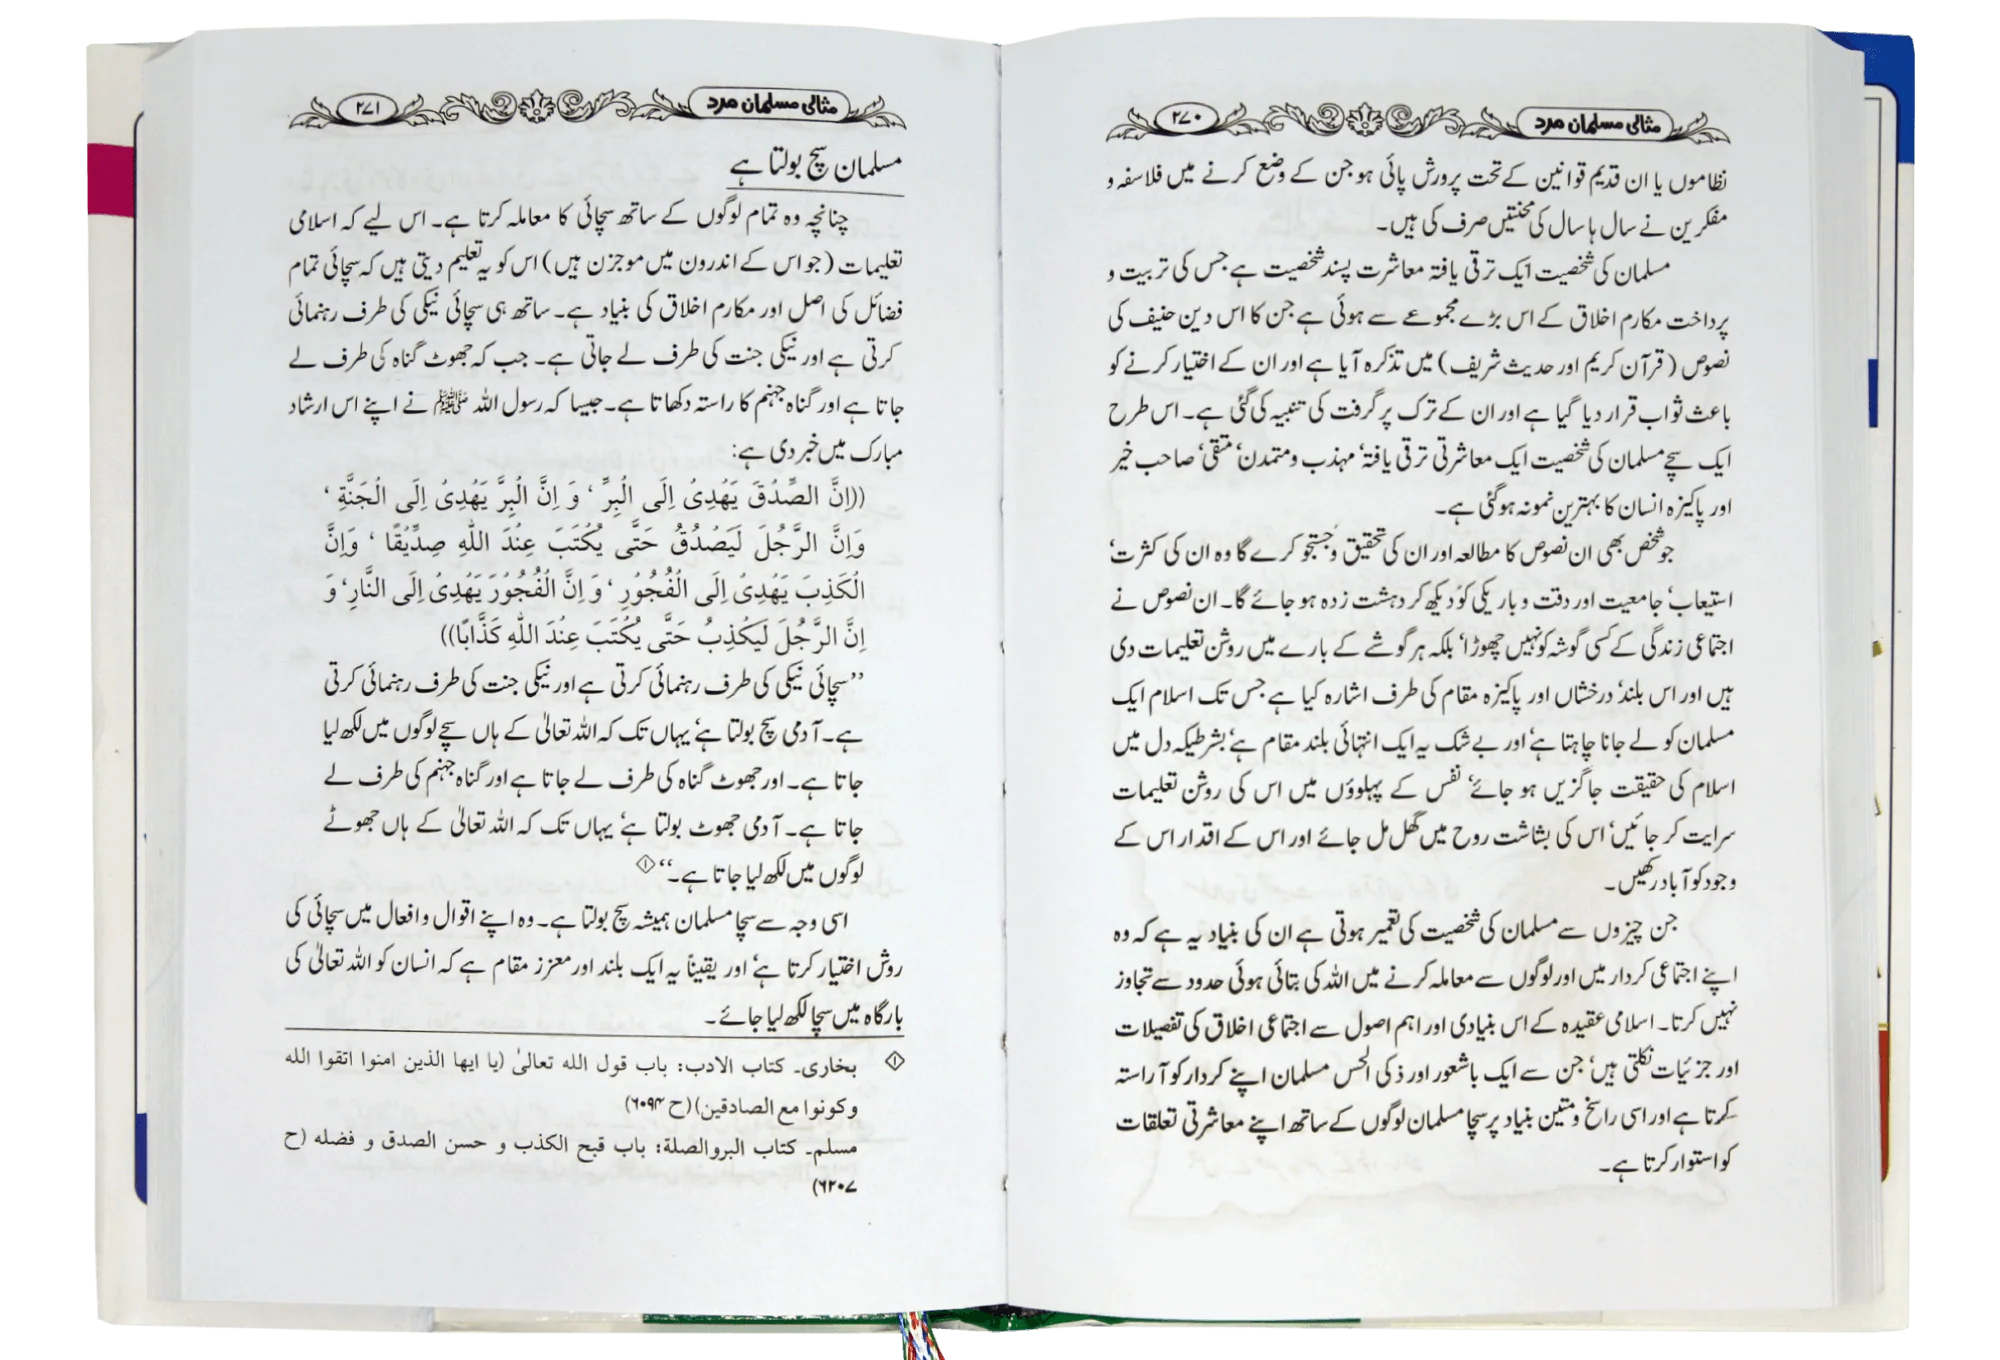 مثالی مسلمان مرد ۲۷۰
نظاموں یا ان قدیم قوانین کے تحت پرورش پائی ہو جن کے وضع کرنے میں فلاسفہ و
مفکرین نے سال ہا سال کی محنتیں صرف کی ہیں۔
مسلمان کی شخصیت ایک ترقی یافتہ معاشرت پسند شخصیت ہے جس کی تربیت و
پرداخت مکارم اخلاق کے اس بڑے مجموعے سے ہوئی ہے جن کا اس دین حنیف کی
نصوص (قرآن کریم اور حدیث شریف) میں تذکرہ آیا ہے اور ان کے اختیار کرنے کو
باعث ثواب قرار دیا گیا ہے اور ان کے ترک پر گرفت کی تنبیہ کی گئی ہے۔ اس طرح
ایک سچے مسلمان کی شخصیت ایک معاشرتی ترقی یافتہ‘ مہذب و متمدن‘ متقی‘ صاحب خیر
اور پاکیزہ انسان کا بہترین نمونہ ہو گئی ہے۔
جو شخص بھی ان نصوص کا مطالعہ اور ان کی تحقیق و جستجو کرے گا وہ ان کی کثرت‘
استیعاب‘ جامعیت اور دقت و باریکی کو دیکھ کر دہشت زدہ ہو جائے گا۔ ان نصوص نے
اجتماعی زندگی کے کسی گوشہ کو نہیں چھوڑا‘ بلکہ ہر گوشے کے بارے میں روشن تعلیمات دی
ہیں اور اس بلند‘ درخشاں اور پاکیزہ مقام کی طرف اشارہ کیا ہے جس تک اسلام ایک
مسلمان کو لے جانا چاہتا ہے‘ اور بے شک یہ ایک انتہائی بلند مقام ہے‘ بشرطیکہ دل میں
اسلام کی حقیقت جاگزیں ہو جائے‘ نفس کے پہلوؤں میں اس کی روشن تعلیمات
سرایت کر جائیں‘ اس کی بشاشت روح میں گھل مل جائے اور اس کے اقدار اس کے
وجود کو آباد رکھیں۔
جن چیزوں سے مسلمان کی شخصیت کی تعمیر ہوتی ہے ان کی بنیاد یہ ہے کہ وہ
اپنے اجتماعی کردار میں اور لوگوں سے معاملہ کرنے میں اللہ کی بتائی ہوئی حدود سے تجاوز
نہیں کرتا۔ اسلامی عقیدہ کے اس بنیادی اور اہم اصول سے اجتماعی اخلاق کی تفصیلات
اور جزئیات نکلتی ہیں‘ جن سے ایک باشعور اور ذکی الحس مسلمان اپنے کردار کو آراستہ
کرتا ہے اور اسی راسخ و متین بنیاد پر سچا مسلمان لوگوں کے ساتھ اپنے معاشرتی تعلقات
کو استوار کرتا ہے۔
مثالی مسلمان مرد ۲۷۱
مسلمان سچ بولتا ہے
چنانچہ وہ تمام لوگوں کے ساتھ سچائی کا معاملہ کرتا ہے۔ اس لیے کہ اسلامی
تعلیمات (جو اس کے اندرون میں موجزن ہیں) اس کو یہ تعلیم دیتی ہیں کہ سچائی تمام
فضائل کی اصل اور مکارم اخلاق کی بنیاد ہے۔ ساتھ ہی سچائی نیکی کی طرف رہنمائی
کرتی ہے اور نیکی جنت کی طرف لے جاتی ہے۔ جب کہ جھوٹ گناہ کی طرف لے
جاتا ہے اور گناہ جہنم کا راستہ دکھاتا ہے۔ جیسا کہ رسول اللہ ﷺ نے اپنے اس ارشاد
مبارک میں خبر دی ہے:
((اِنَّ الصِّدْقَ یَهْدِیْ اِلَی الْبِرِّ‘ وَ اِنَّ الْبِرَّ یَهْدِیْ اِلَی الْجَنَّةِ‘
وَاِنَّ الرَّجُلَ لَیَصْدُقُ حَتّٰی یُکْتَبَ عِنْدَ اللّٰهِ صِدِّیْقًا‘ وَاِنَّ
الْکَذِبَ یَهْدِیْ اِلَی الْفُجُوْرِ‘ وَ اِنَّ الْفُجُوْرَ یَهْدِیْ اِلَی النَّارِ‘ وَ
اِنَّ الرَّجُلَ لَیَکْذِبُ حَتّٰی یُکْتَبَ عِنْدَ اللّٰهِ کَذَّابًا))
’’سچائی نیکی کی طرف رہنمائی کرتی ہے اور نیکی جنت کی طرف رہنمائی کرتی
ہے۔ آدمی سچ بولتا ہے‘ یہاں تک کہ اللہ تعالیٰ کے ہاں سچے لوگوں میں لکھ لیا
جاتا ہے۔ اور جھوٹ گناہ کی طرف لے جاتا ہے اور گناہ جہنم کی طرف لے
جاتا ہے۔ آدمی جھوٹ بولتا ہے‘ یہاں تک کہ اللہ تعالیٰ کے ہاں جھوٹے
لوگوں میں لکھ لیا جاتا ہے۔‘‘ ①
اسی وجہ سے سچا مسلمان ہمیشہ سچ بولتا ہے۔ وہ اپنے اقوال و افعال میں سچائی کی
روش اختیار کرتا ہے‘ اور یقیناً یہ ایک بلند اور معزز مقام ہے کہ انسان کو اللہ تعالیٰ کی
بارگاہ میں سچا لکھ لیا جائے۔
① بخاری۔ کتاب الادب: باب قول الله تعالیٰ (یا ایها الذین امنوا اتقوا الله
وکونوا مع الصادقین) (ح ۶۰۹۴)
مسلم۔ کتاب البروالصلة: باب قبح الکذب و حسن الصدق و فضله (ح
۲۶۰۷)